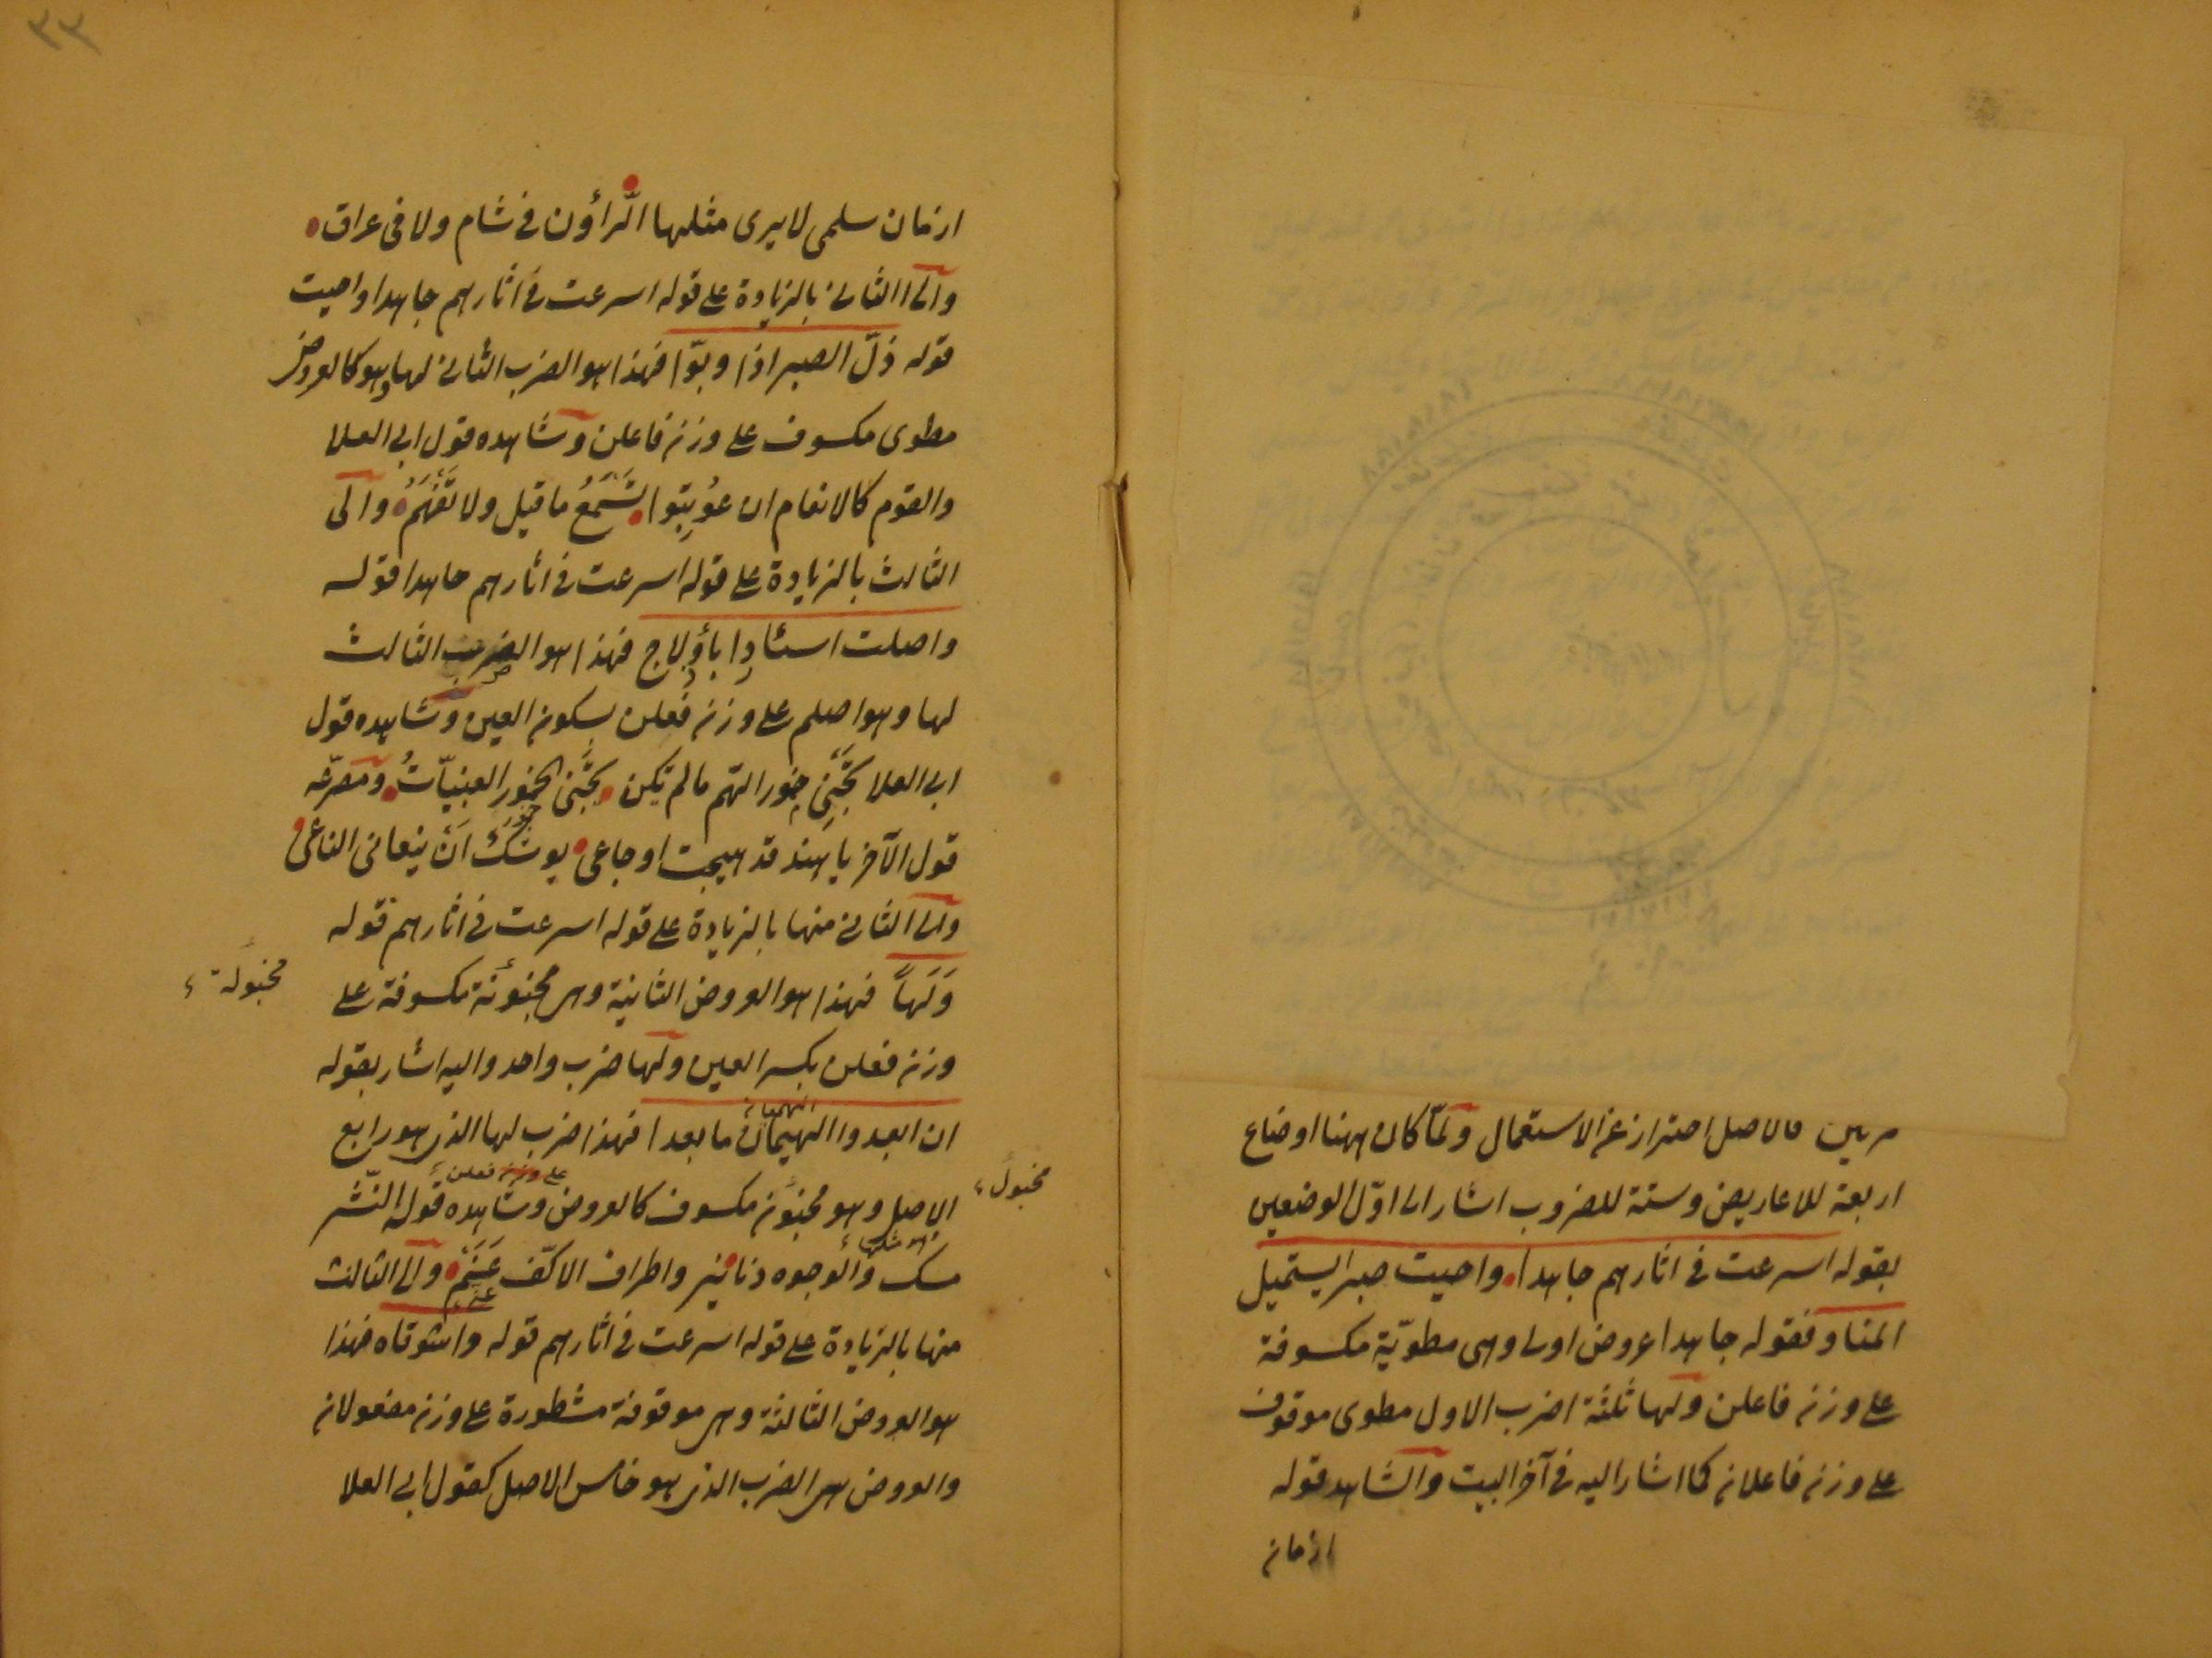 فالاصل احتراز عن الاستعمال ولمّا كان ههنا اوضاع
اربعة للاعاريض وستة للضروب اشار الى اوّل الوضعين
بقوله اسرعت فى اثارهم جاهدا واحيت صبر ايستحيل
فقوله جاهدا عروض اولى وهى مطويّة مكسوفة
على وزن فاعلن ولها ثلثة اضرب الاول مطوى موقوف
على وزن فاعلان كما اشار اليه فى آخر البيت والشاهد قوله
ازمان
٣٣
ازمان سلمى لا يرى مثلها الرّاؤن فى شام ولا فى عراق
والى الثانى بالزيادة على قوله اسرعت فى اثارهم جاهدا واحيت
قوله ذلّ الصبر اذا وبوّا فهذا هو الضرب الثانى لها وهو كالعروض
مطوى مكسوف على وزن فاعلن وشاهده قول ابى العلا
والقوم كالانعام ان عُوتِبُوا تَسْمَعُ ما قيل ولا تَفْهَمُ والى
الثالث بالزيادة على قوله اسرعت فى اثارهم جاهدا قوله
واصلت اسئادا باولاج فهذا هو الضرب الثالث
لها وهو اصلم على وزن فعلن بسكون العين وشاهده قول
ابى العلا ما لم تكن ومصرّعه
قول الآخر يا هند قد هيجت اوجاعى يوشك اَنْ ينعانى الناعى
والى الثانى منها بالزيادة على قوله اسرعت فى اثارهم قوله
وَلَهاً فهذا هو العروض الثانية وهى مخبونة مكسوفة على
مخبولة
وزن فعلن بكسر العين ولها ضرب واحد واليه اشار بقوله
ان ابعدوا الهيمان ما بعدا فهذا ضرب لها الذى هو رابع
الاصل وهو مخبون مكسوف كالعروض وشاهده قوله النّشر
على وزن فعلن
مخبول
مسك والوجوه دنانير واطراف الاكفّ عَنَمْ والى الثالث
منها بالزيادة على قوله اسرعت فى اثارهم قوله واشوقاه فهذا
هو العروض الثالثة وهى موقوفة مشطورة على وزن مفعولان
والعروض هى الضرب الذى هو خامس الاصل كقول ابى العلا